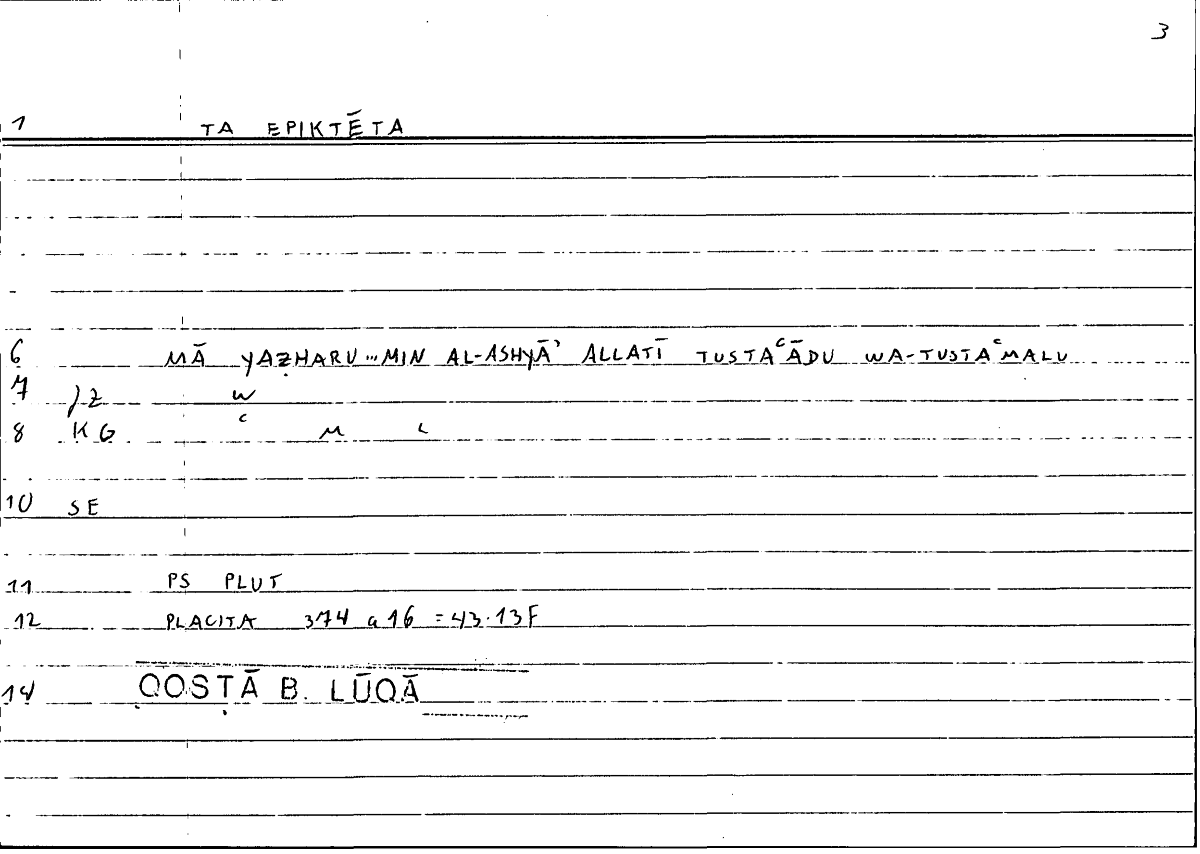 3
1 TA EPIKTĒTA
6 MĀ YAẒHARU...MIN AL-ASHYĀ' ALLATĪ TUSTAᶜĀDU WA-TUSTAᶜMALU
7 JZ W
8 KG ᶜ M L
10 SE
11 PS PLUT
12 PLACITA 374 a 16 = 43.13F
14 QOSṬĀ B. LŪQĀ